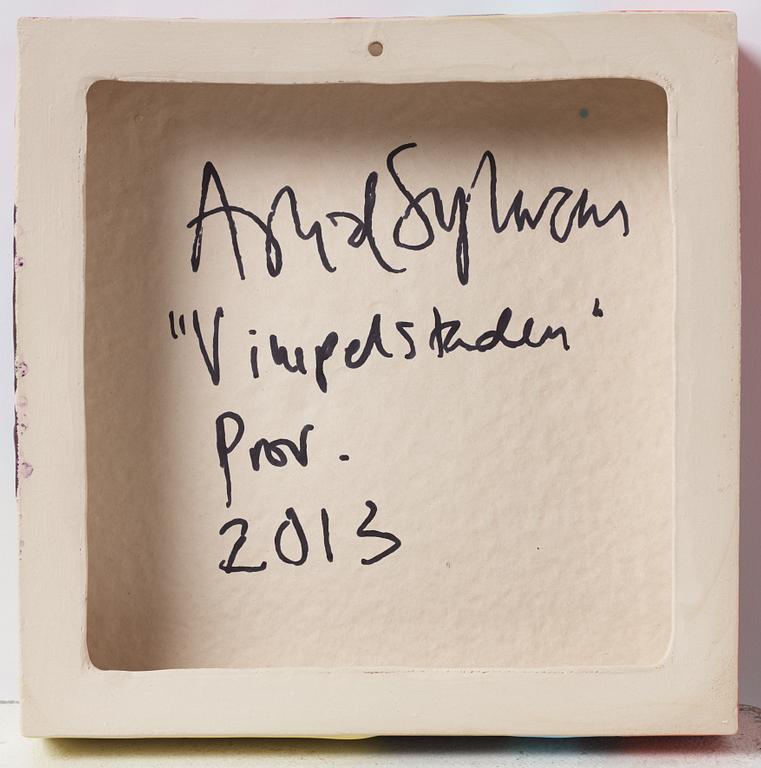 Astrid Sylwan
"Vimpelstaden"
Prov.
2013